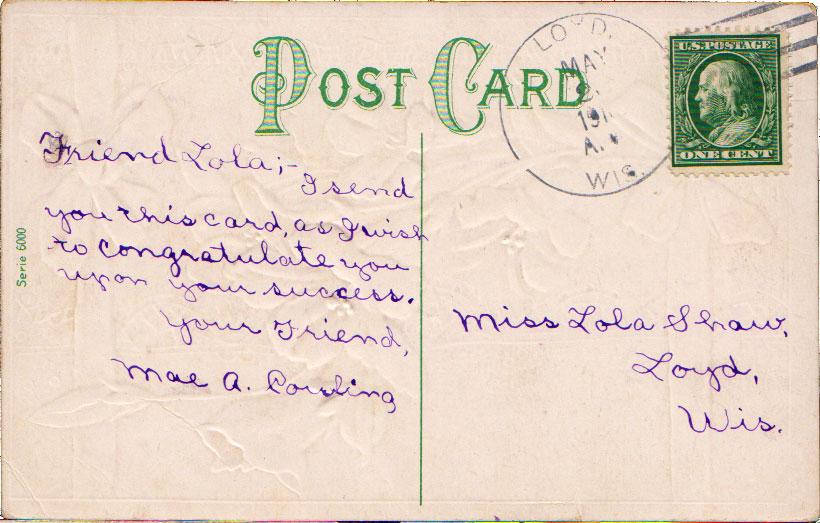 POST CARD
LOYD,
MAY
A.
WIS.
U.S. POSTAGE
ONE CENT
Friend Lola;-
I send
you this card, as I wish
to congratulate you
upon your success.
Your Friend,
Mae A. Cowling
Serie 6000
Miss Lola Shaw,
Loyd,
Wis.